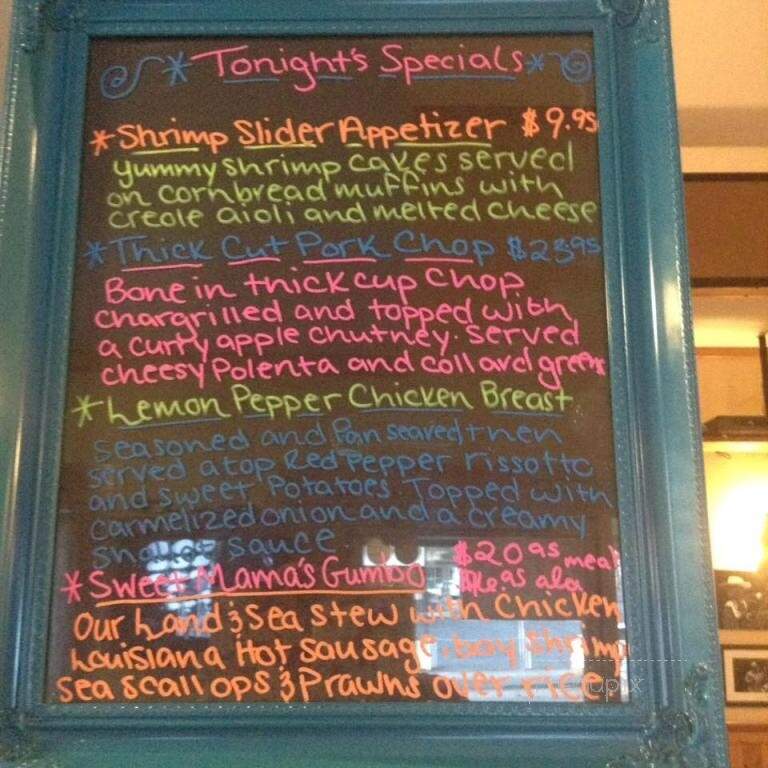 * Tonight's Specials *
* Shrimp Slider Appetizer $9.95
yummy shrimp cakes served
on cornbread muffins with
creole aioli and melted cheese
* Thick Cut Pork Chop $23.95
Bone in thick cup Chop
chargrilled and topped with
a curry apple chutney. served
cheesy Polenta and collard greens
* Lemon Pepper Chicken Breast
seasoned and Pan seared then
served atop Red Pepper rissotto
and sweet Potatoes Topped with
carmelized onion and a creamy
sauce
$20.95 meal
* Sweet Mama's Gumbo
Our Land & Sea stew with Chicken
Louisiana Hot sausage, bay shrimp
sea scallops & Prawns over rice.